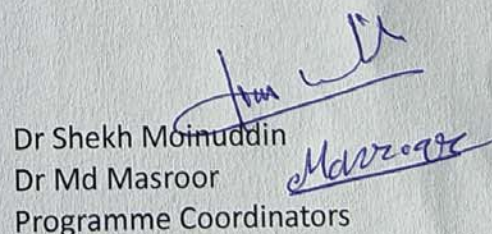 Dr Shekh Moinuddin
Dr Md Masroor
Masroor
Programme Coordinators